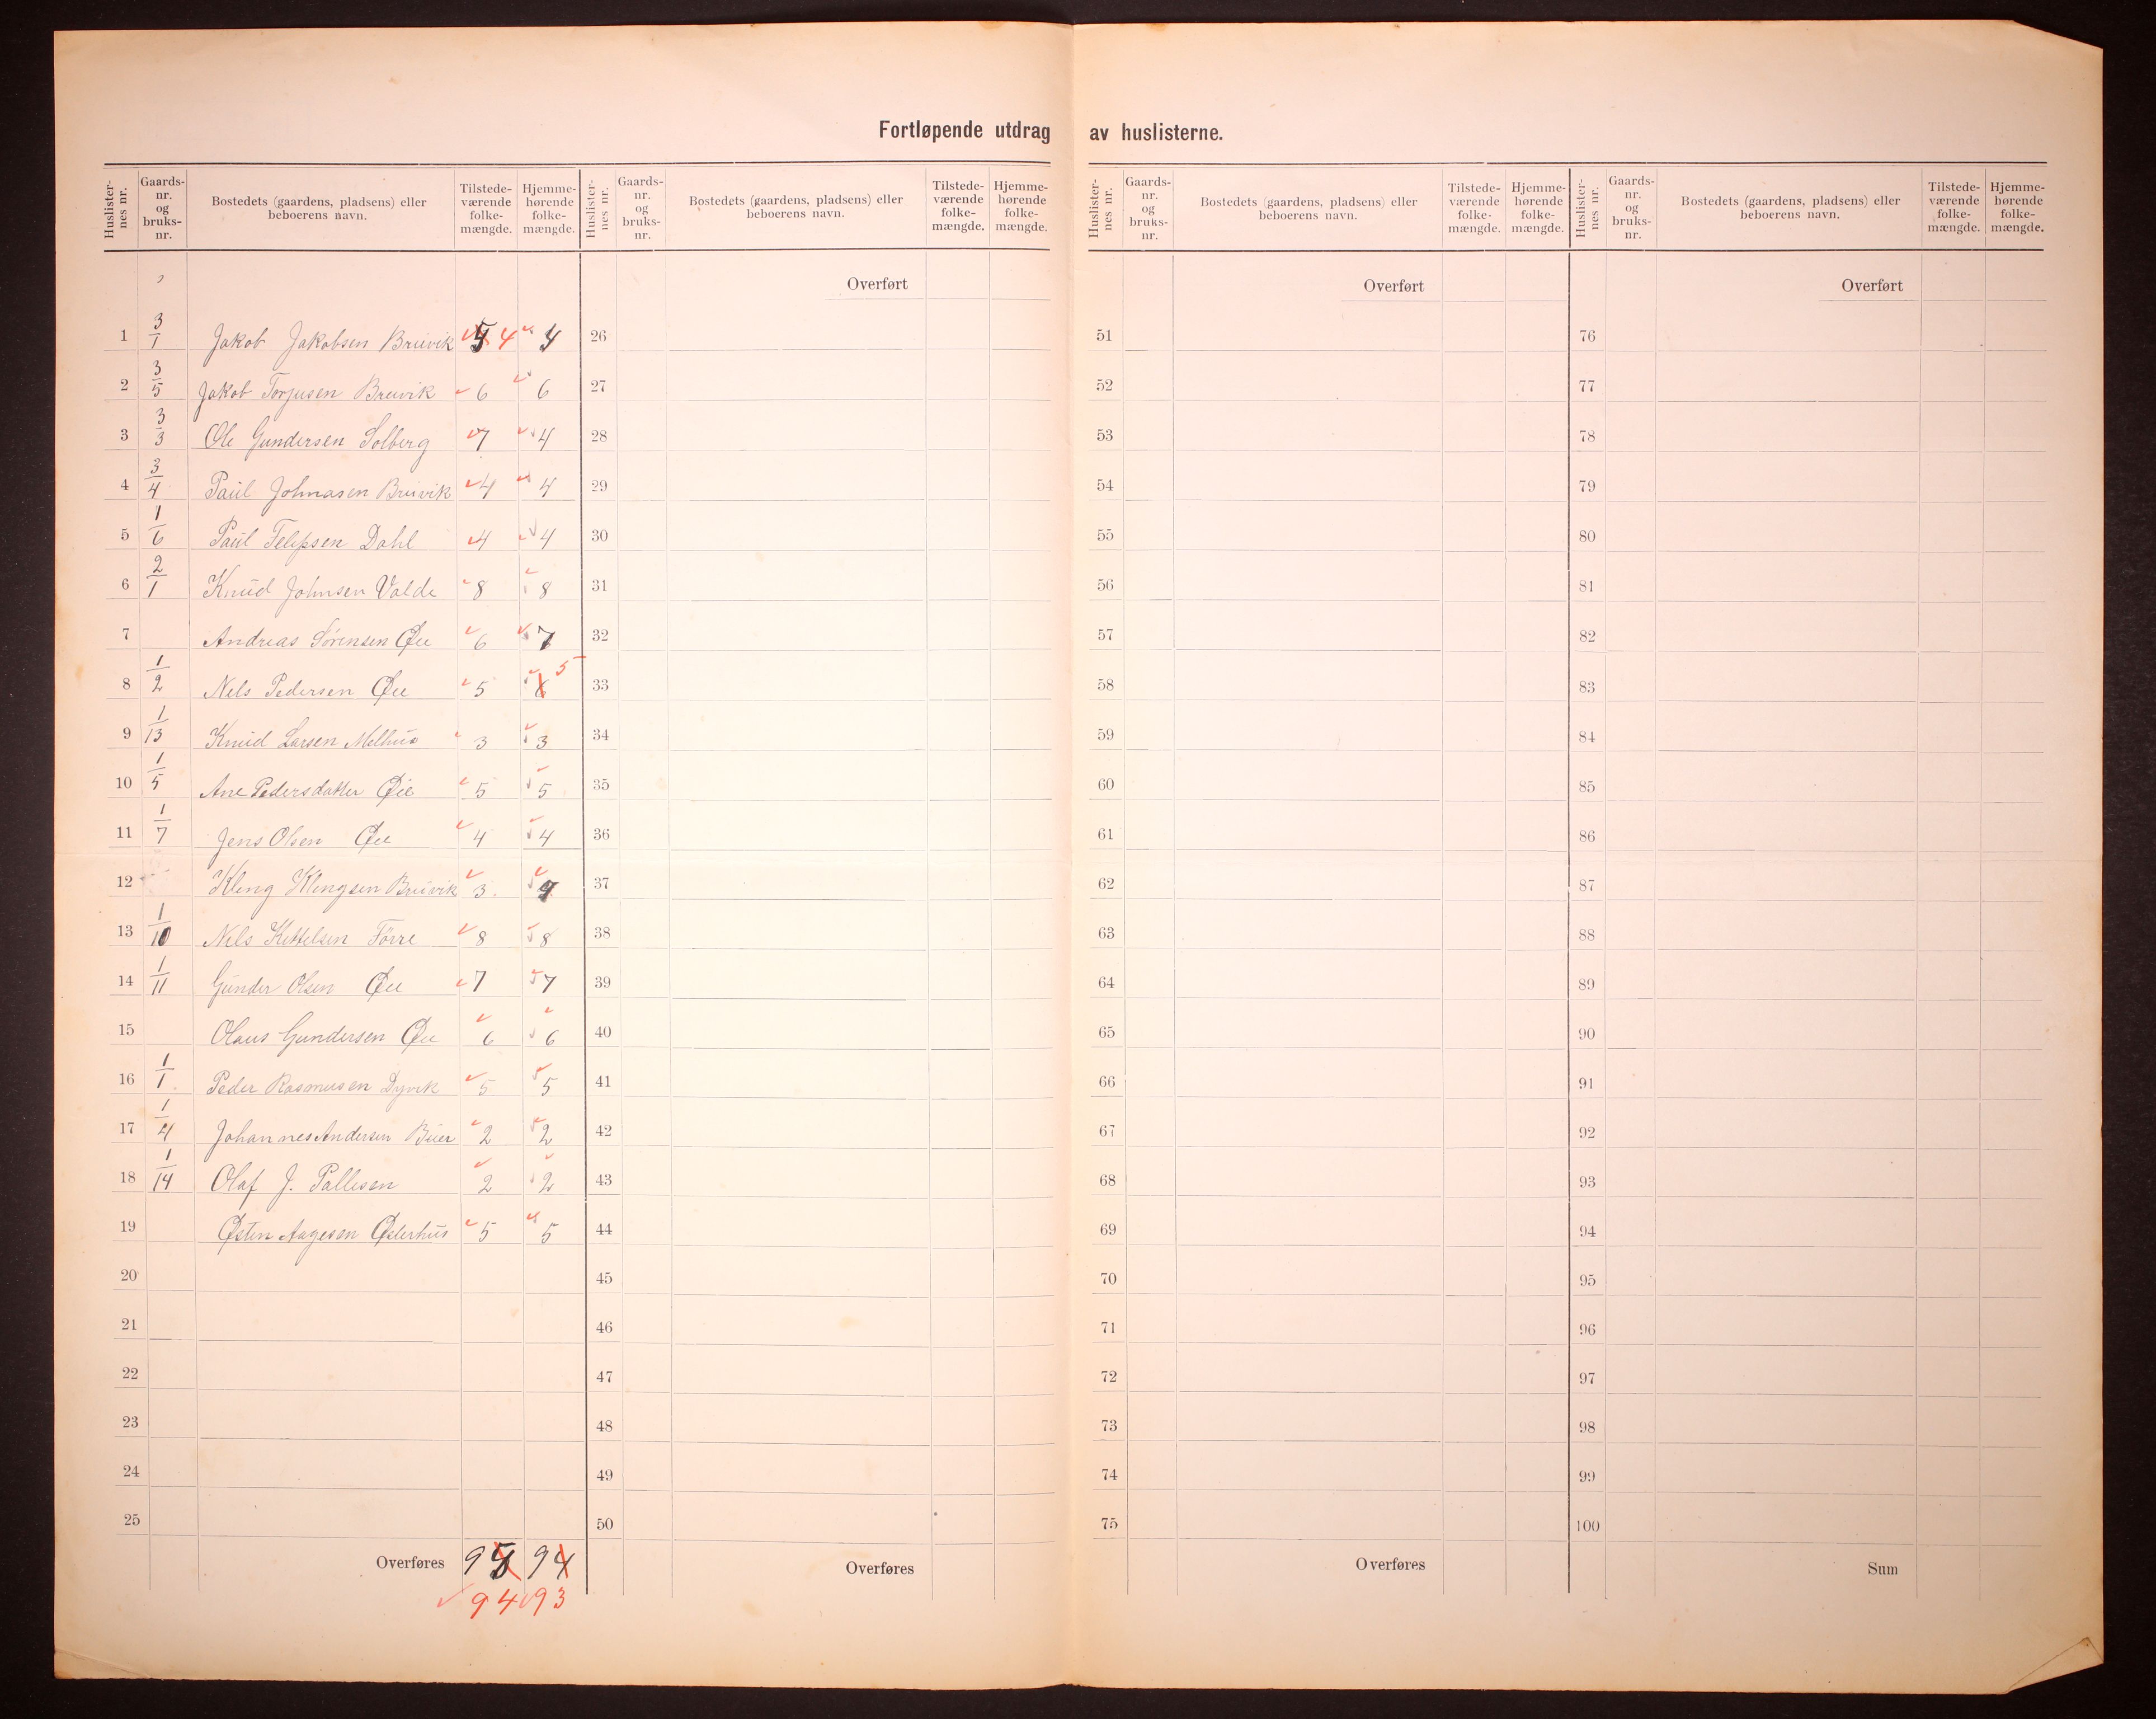 Fortløpende utdrag av huslisterne.
Huslister-nes nr. Gaards-nr. og bruks-nr. Bostedets (gaardens, pladsens) eller beboerens navn. Tilstede-værende folke-mængde. Hjemme-hørende folke-mængde.
Huslister-nes nr. Gaards-nr. og bruks-nr. Bostedets (gaardens, pladsens) eller beboerens navn. Tilstede-værende folke-mængde. Hjemme-hørende folke-mængde.
Huslister-nes nr. Gaards-nr. og bruks-nr. Bostedets (gaardens, pladsens) eller beboerens navn. Tilstede-værende folke-mængde. Hjemme-hørende folke-mængde.
Huslister-nes nr. Gaards-nr. og bruks-nr. Bostedets (gaardens, pladsens) eller beboerens navn. Tilstede-værende folke-mængde. Hjemme-hørende folke-mængde.
Overført Overført Overført
1 3/1 Jakob Jakobsen Bruvik 5 4 4 26 51 76
2 3/5 Jakob Torjusen Bruvik 6 6 27 52 77
3 3/3 Ole Gundersen Solberg 7 4 28 53 78
4 3/4 Paul Johnasen Bruvik 4 4 29 54 79
5 1/6 Paul Felipsen Dahl 4 4 30 55 80
6 2/1 Knud Johnsen Valde 8 8 31 56 81
7 Andreas Sörensen Øie 6 7 32 57 82
8 1/2 Nils Pedersen Øie 5 6 5 33 58 83
9 1/13 Knud Larsen Melhus 3 3 34 59 84
10 1/5 Ane Pedersdatter Øie 5 5 35 60 85
11 1/7 Jens Olsen Øie 4 4 36 61 86
12 Kleng Klengsen Bruvik 3 37 62 87
13 1/10 Nils Kittelsen Förre 8 8 38 63 88
14 1/11 Gunder Olsen Øie 7 7 39 64 89
15 Olaus Gundersen Øie 6 6 40 65 90
16 1/1 Peder Rasmusen Dyvik 5 5 41 66 91
17 1/4 Johannes Andersen 2 2 42 67 92
18 1/14 Olaf J. Pallesen 2 2 43 68 93
19 Østen Aagesen Østerhus 5 5 44 69 94
20 45 70 95
21 46 71 96
22 47 72 97
23 48 73 98
24 49 74 99
25 50 75 100
Overføres 95 94 Overføres Overføres Sum
94 93